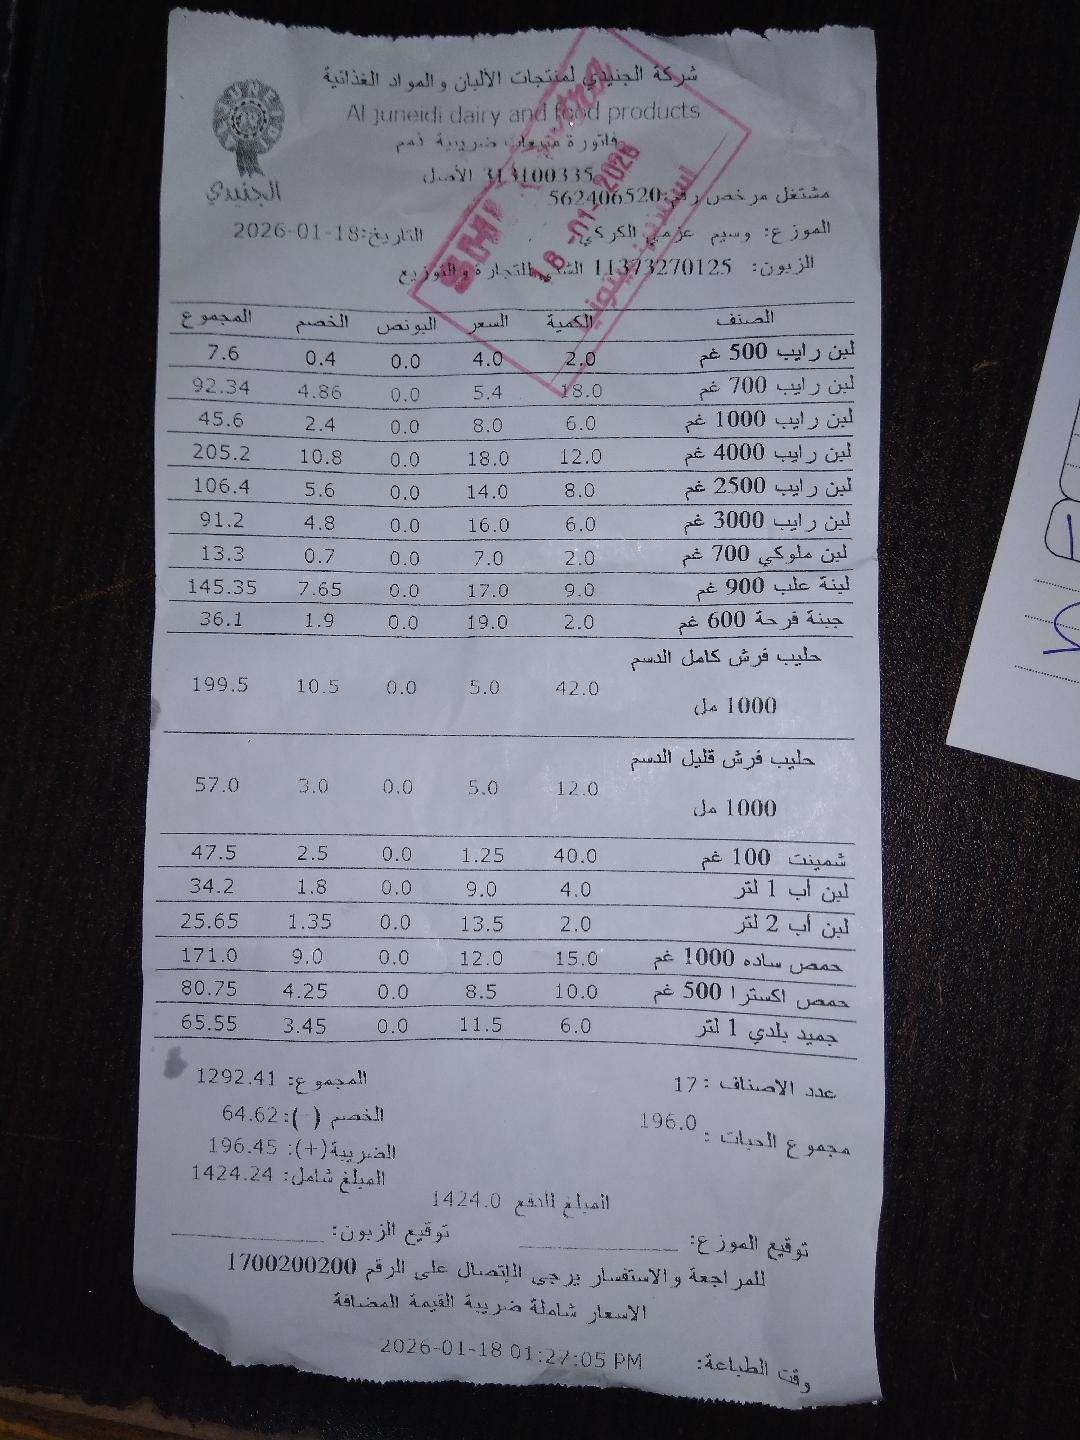 شركة الجنيدي لمنتجات الألبان والمواد الغذائية
Al juneidi dairy and food products
فاتورة مبيعات ضريبية ذمم
313100335 الأصل
الجنيدي
مشتغل مرخص رقم: 562406520
الموزع: وسيم عزمي الكركي التاريخ: 2026-01-18
الزبون: 11373270125 للتجارة والتوزيع
18 -01- 2026
الصنف الكمية السعر البونص الخصم المجموع
لبن رايب 500 غم 2.0 4.0 0.0 0.4 7.6
لبن رايب 700 غم 18.0 5.4 0.0 4.86 92.34
لبن رايب 1000 غم 6.0 8.0 0.0 2.4 45.6
لبن رايب 4000 غم 12.0 18.0 0.0 10.8 205.2
لبن رايب 2500 غم 8.0 14.0 0.0 5.6 106.4
لبن رايب 3000 غم 6.0 16.0 0.0 4.8 91.2
لبن ملوكي 700 غم 2.0 7.0 0.0 0.7 13.3
لبنة علب 900 غم 9.0 17.0 0.0 7.65 145.35
جبنة فرحة 600 غم 2.0 19.0 0.0 1.9 36.1
حليب فرش كامل الدسم
1000 مل 42.0 5.0 0.0 10.5 199.5
حليب فرش قليل الدسم
1000 مل 12.0 5.0 0.0 3.0 57.0
شمينت 100 غم 40.0 1.25 0.0 2.5 47.5
لبن أب 1 لتر 4.0 9.0 0.0 1.8 34.2
لبن أب 2 لتر 2.0 13.5 0.0 1.35 25.65
حمص ساده 1000 غم 15.0 12.0 0.0 9.0 171.0
حمص اكسترا 500 غم 10.0 8.5 0.0 4.25 80.75
جميد بلدي 1 لتر 6.0 11.5 0.0 3.45 65.55
عدد الاصناف : 17 المجموع: 1292.41
مجموع الحبات : 196.0 الخصم (-): 64.62
الضريبة(+): 196.45
المبلغ شامل: 1424.24
المبلغ للدفع 1424.0
توقيع الموزع: توقيع الزبون:
للمراجعة والاستفسار يرجى الإتصال على الرقم 1700200200
الاسعار شاملة ضريبة القيمة المضافة
وقت الطباعة: 2026-01-18 01:27:05 PM